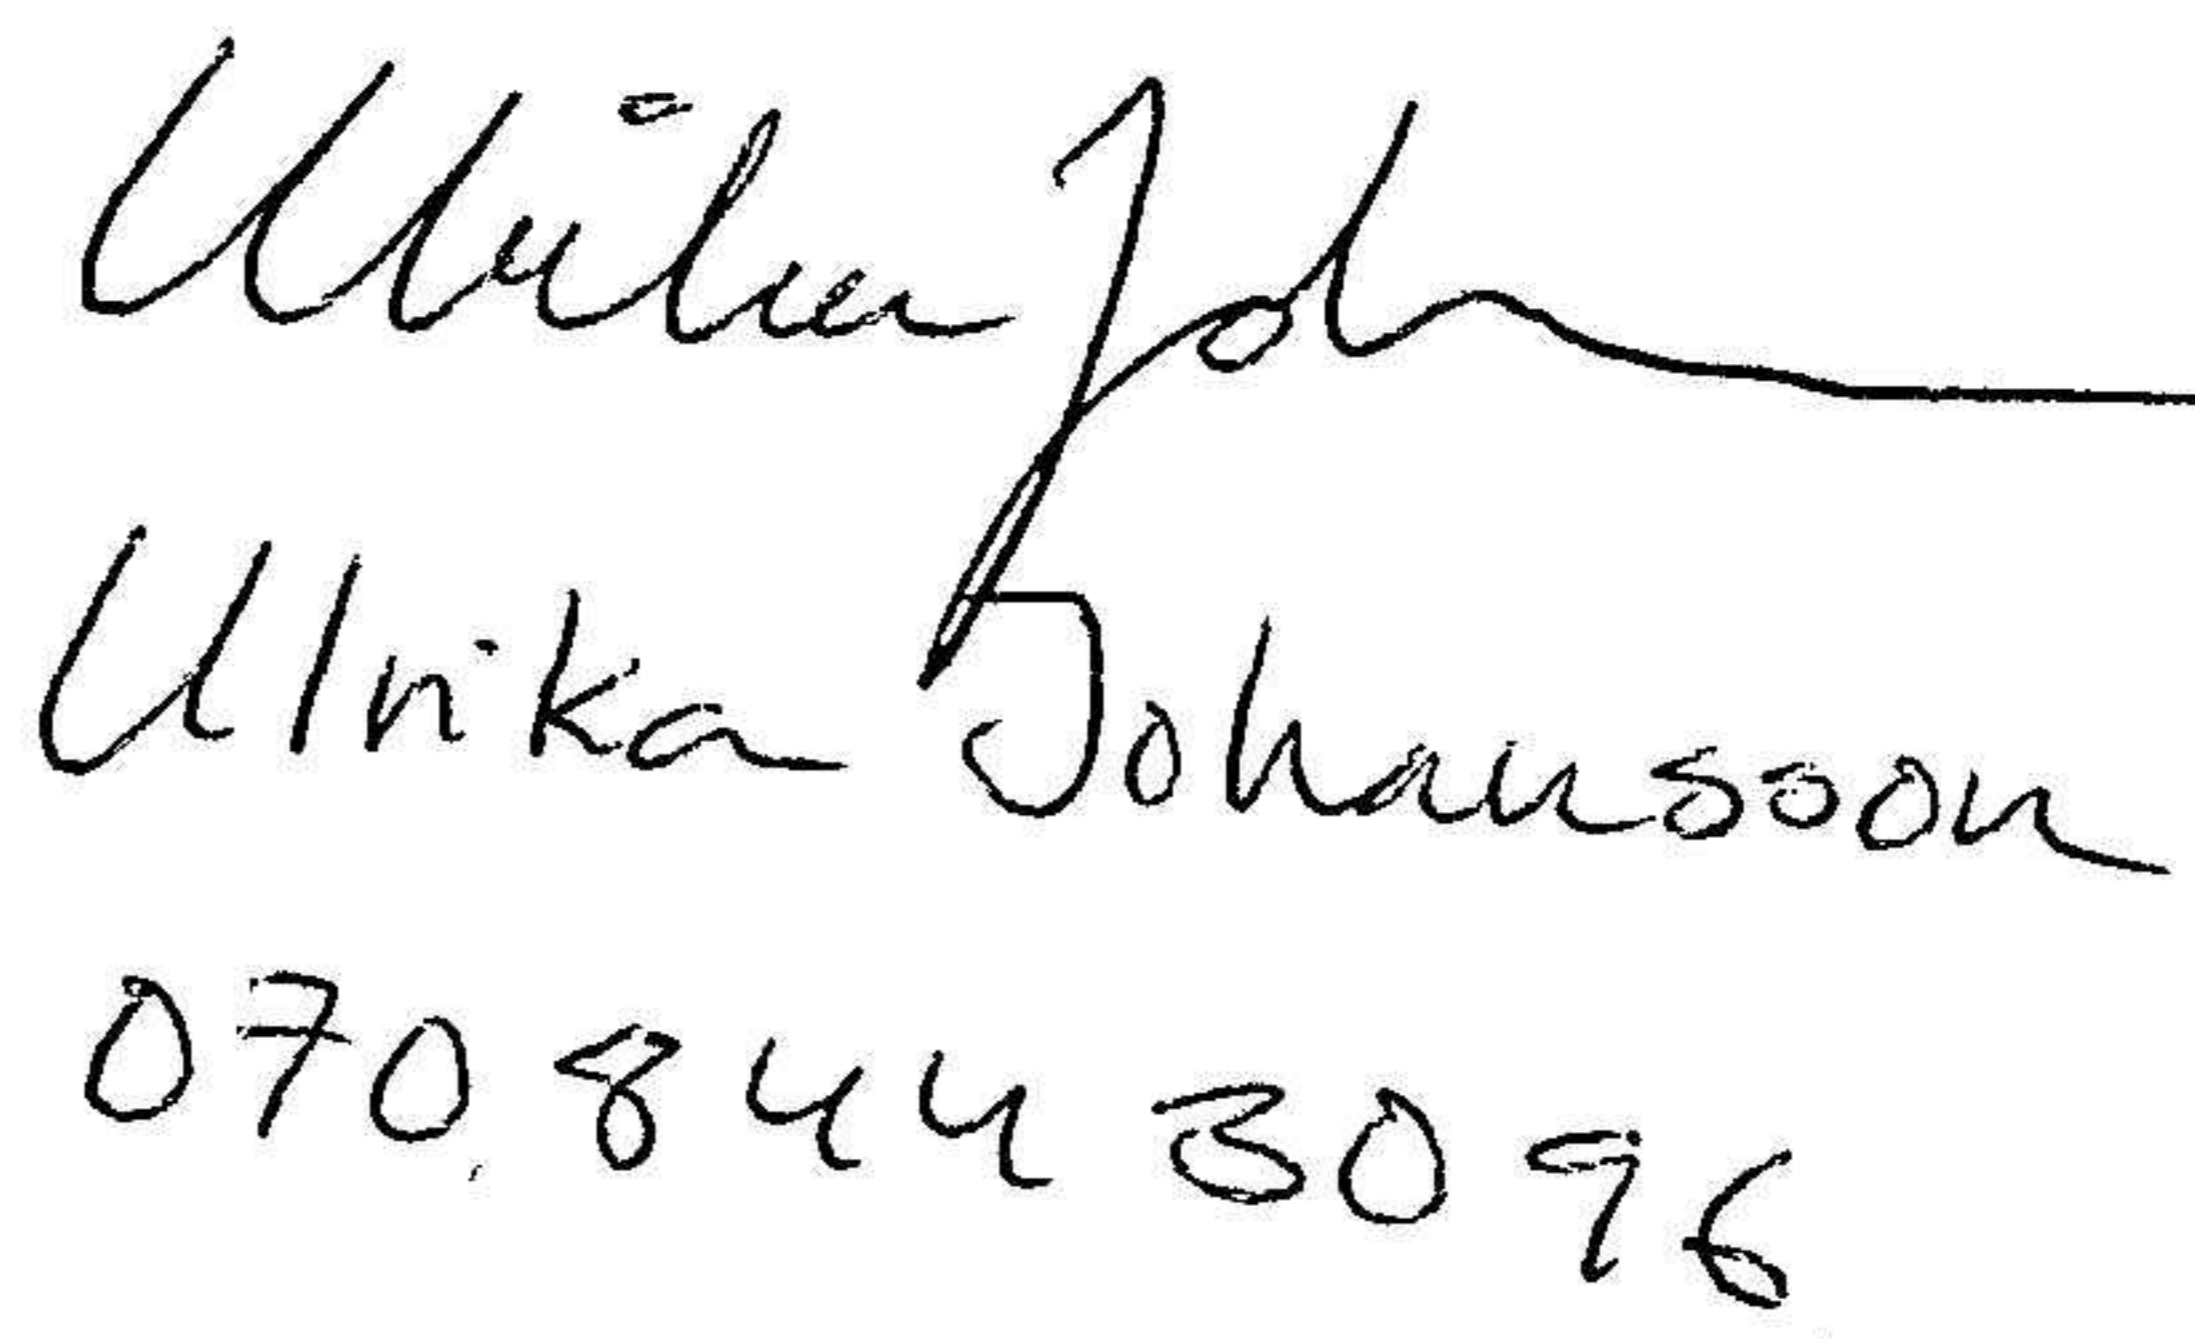 Ulrika Joh
Ulrika Johansson
070 844 30 96